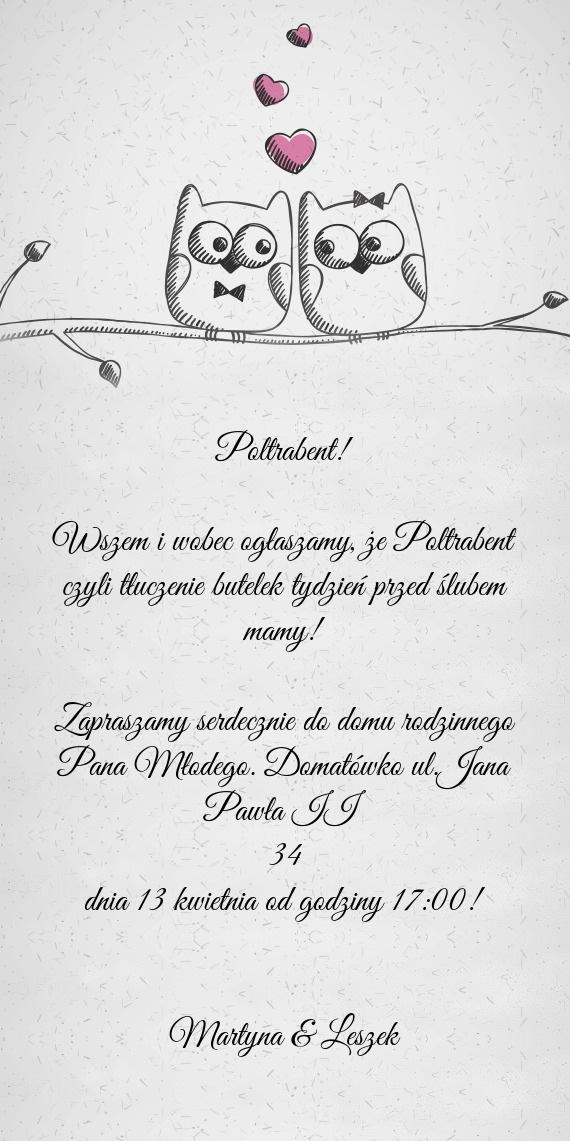 Poltrabent!
Wszem i wobec ogłaszamy, że Poltrabent
czyli tłuczenie butelek tydzień przed ślubem
mamy!
Zapraszamy serdecznie do domu rodzinnego
Pana Młodego. Domatówko ul. Jana
Pawła II
34
dnia 13 kwietnia od godziny 17:00!
Martyna & Leszek